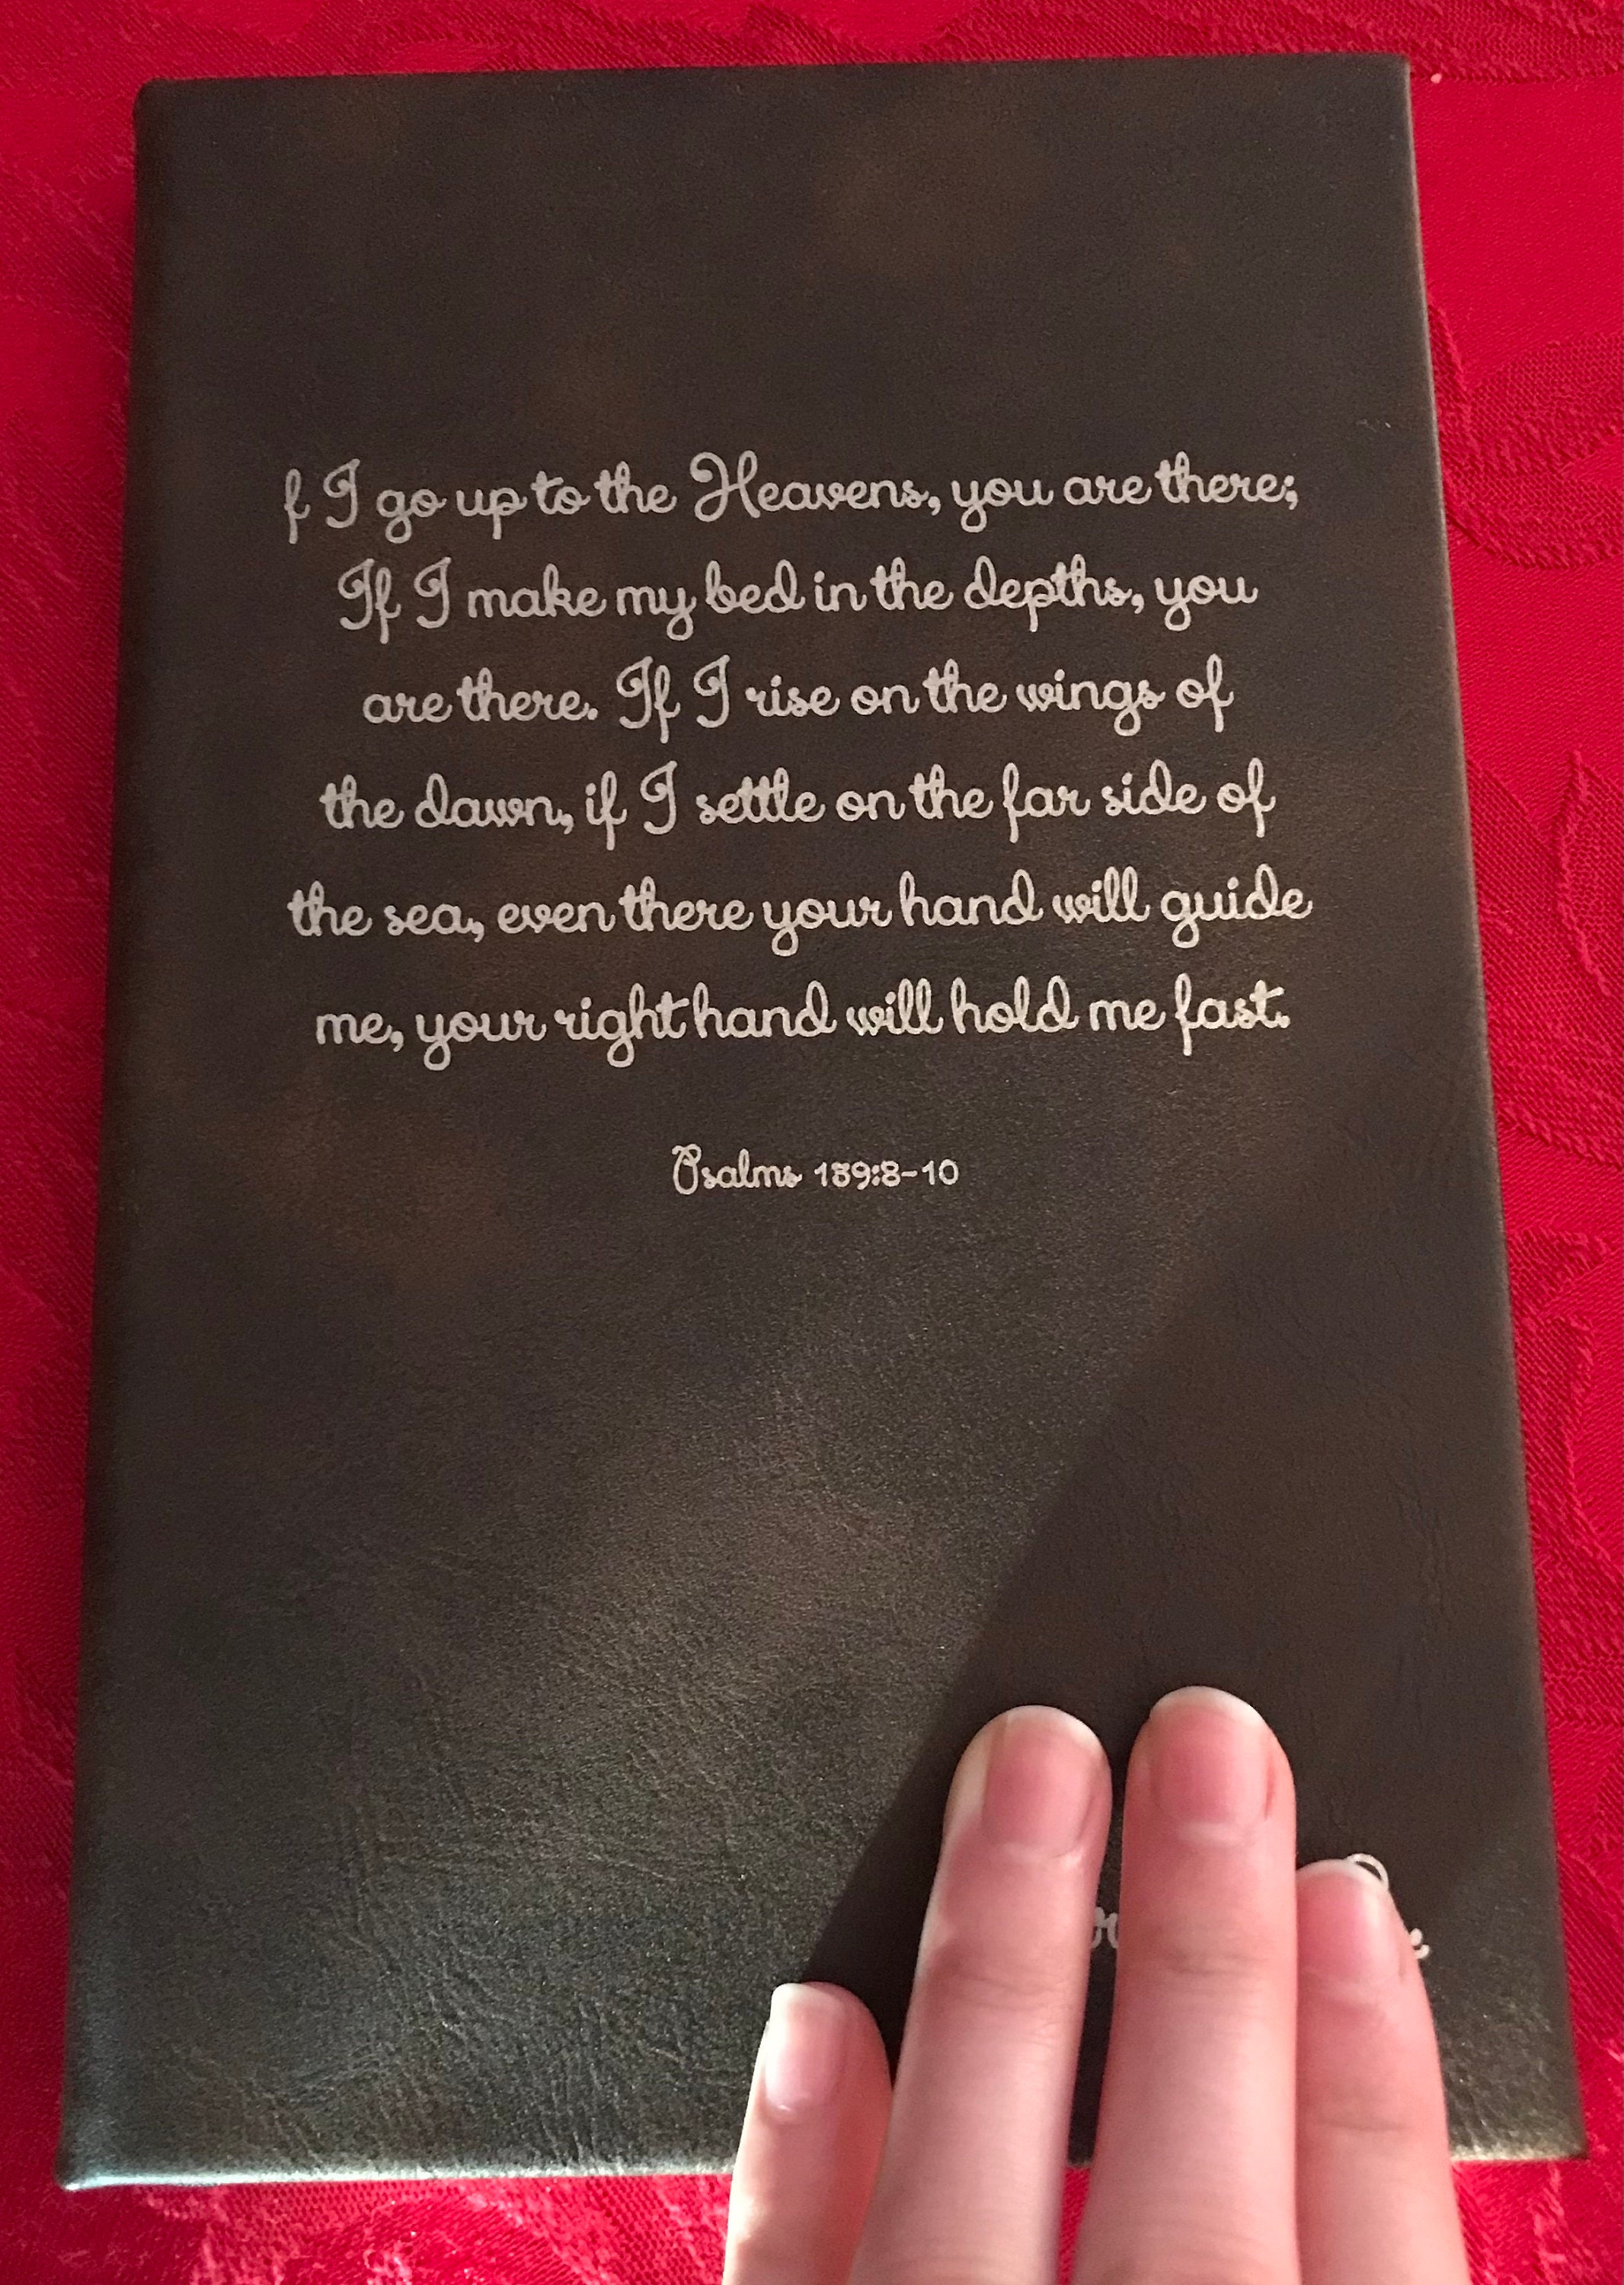 f I go up to the Heavens, you are there;
If I make my bed in the depths, you
are there. If I rise on the wings of
the dawn, if I settle on the far side of
the sea, even there your hand will guide
me, your right hand will hold me fast.
Psalms 139:8-10